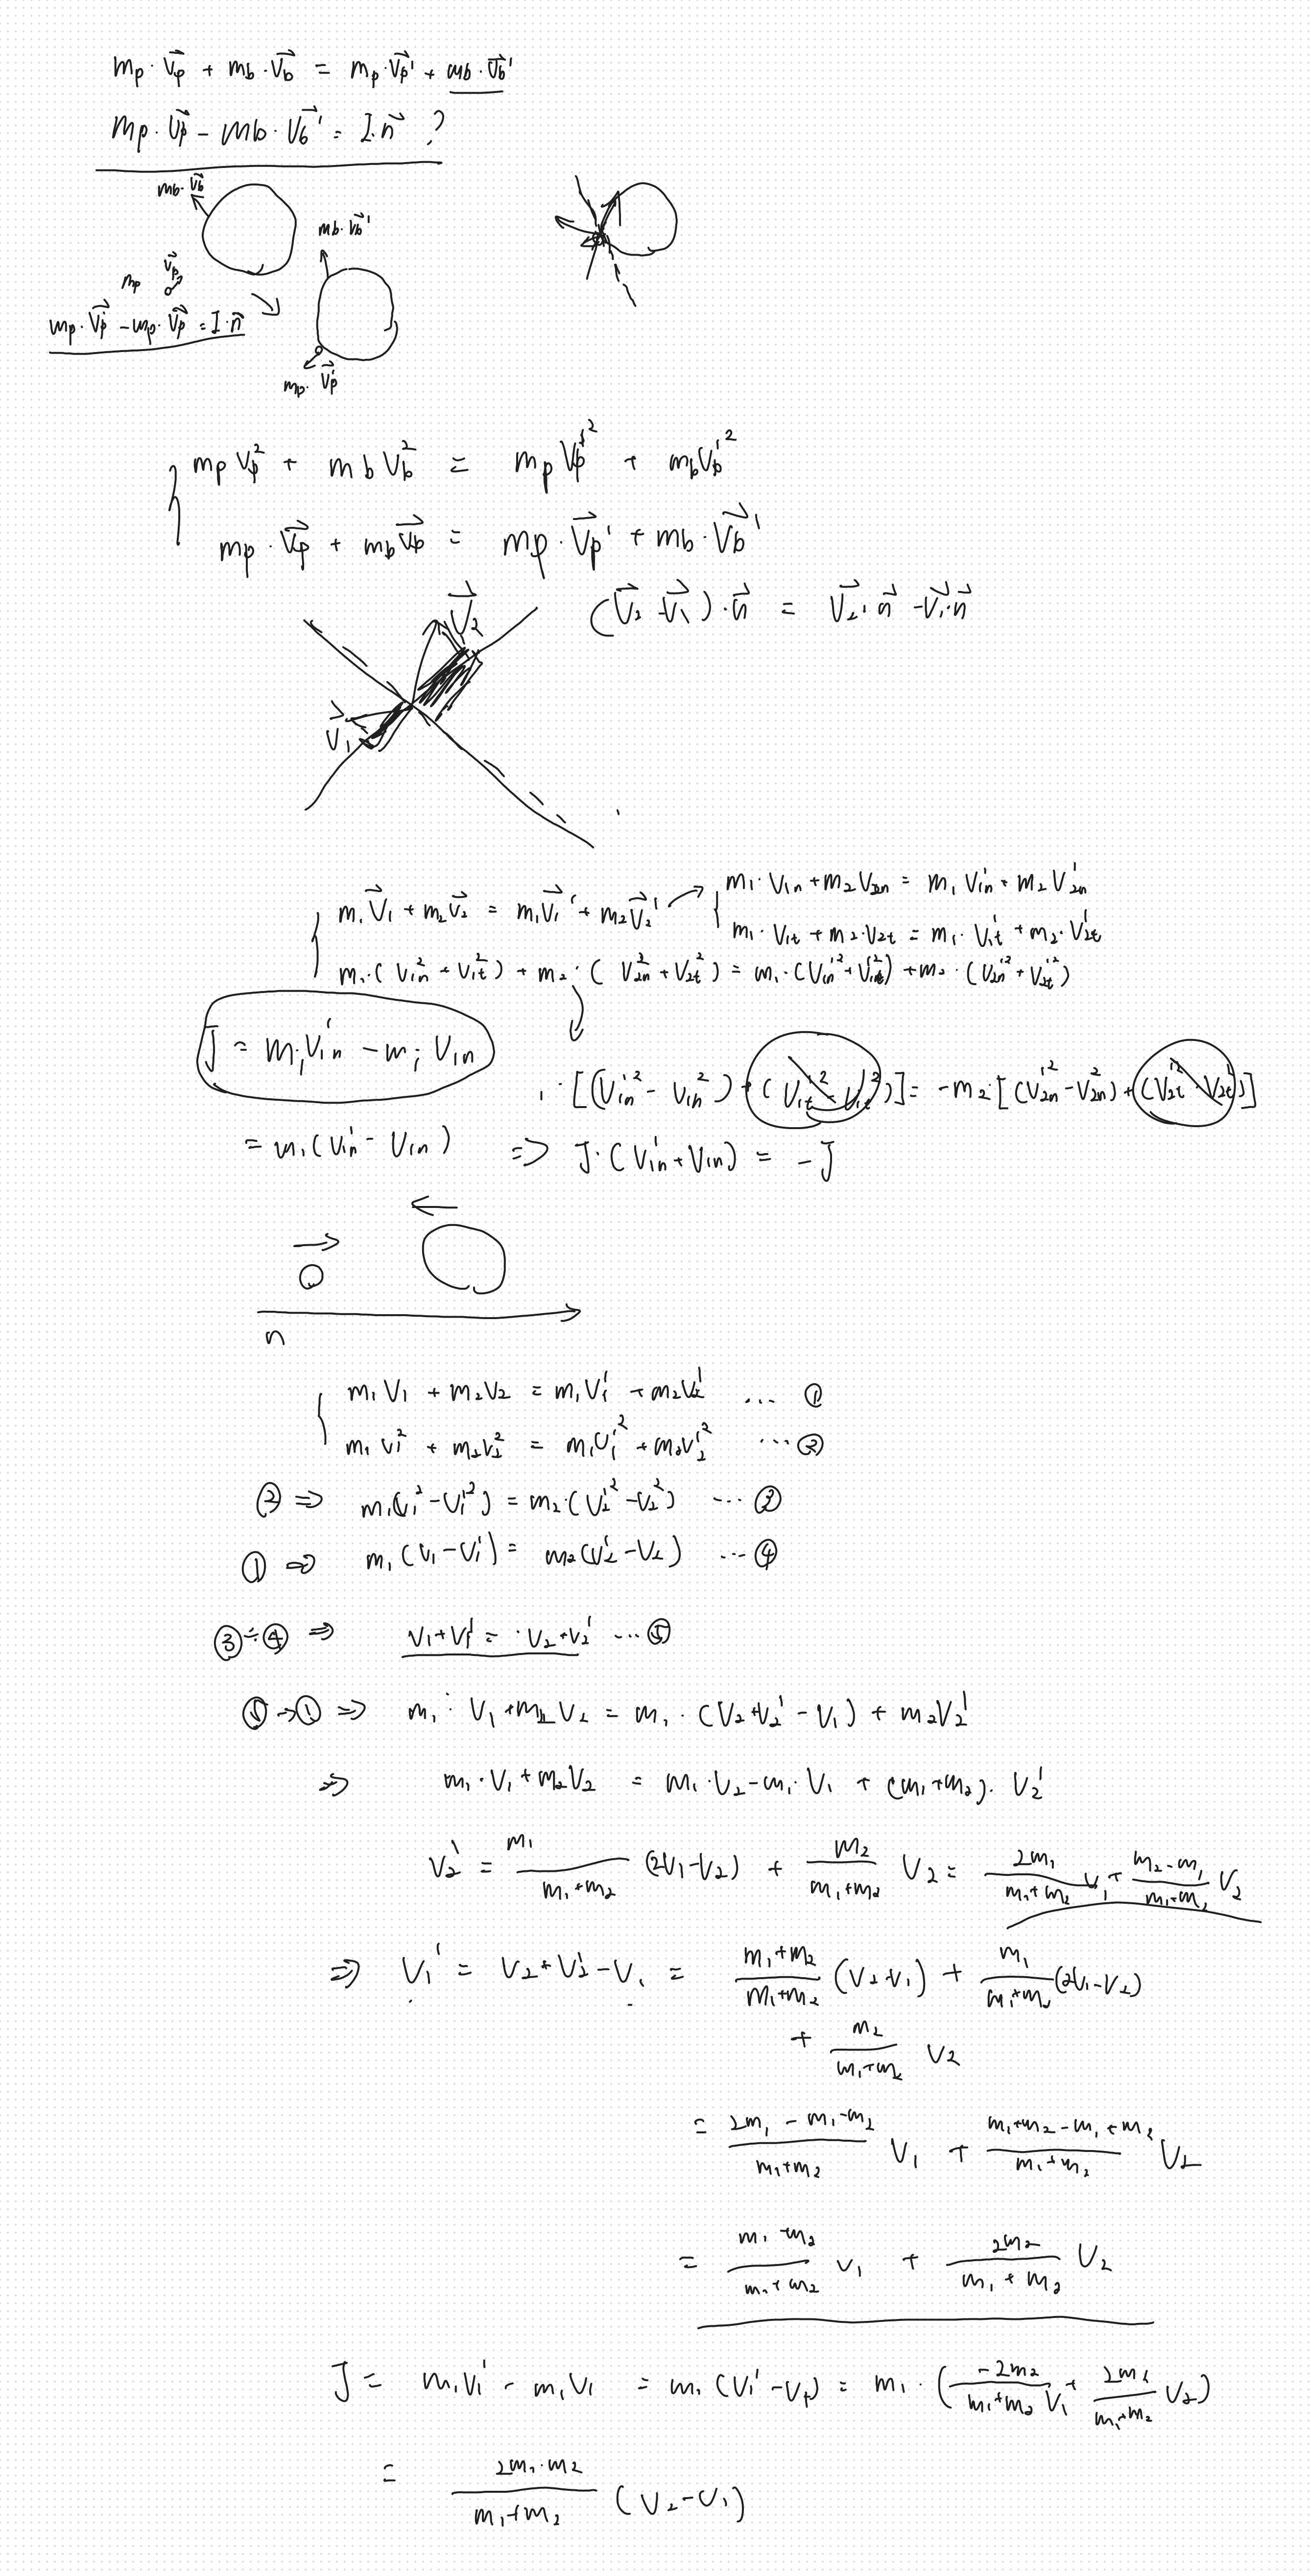 mp · v⃗p + mb · v⃗b = mp · v⃗p' + mb · v⃗b'
mp · v⃗p − mb · v⃗b' = I · n⃗ ?
mb · v⃗b
mb · v⃗b'
mp v⃗p
mp · v⃗p − mp · v⃗p = I · n⃗
mp · v⃗p'
mp vp² + mb vb² = mp vp'² + mb vb'²
mp · v⃗p + mb v⃗b = mp · v⃗p' + mb · v⃗b'
(v⃗2 − v⃗1) · n⃗ = v⃗2 · n⃗ − v⃗1 · n⃗
v⃗2
v⃗1
m1 v⃗1 + m2 v⃗2 = m1 v⃗1' + m2 v⃗2' → m1 · v1n + m2 v2n = m1 v1n' + m2 v2n'
m1 · v1t + m2 · v2t = m1 · v1t' + m2 · v2t'
m1 · (v1n² + v1t²) + m2 · (v2n² + v2t²) = m1 · (v1n'² + v1t'²) + m2 · (v2n'² + v2t'²)
J = m1 v1n' − m1 v1n
· [(v1n'² − v1n²) + (v1t'² − v1t²)] = −m2 · [(v2n'² − v2n²) + (v2t'² − v2t²)]
= m1 (v1n' − v1n) ⇒ J · (v1n' + v1n) = −J
n
m1 v1 + m2 v2 = m1 v1' + m2 v2' ... ①
m1 v1² + m2 v2² = m1 v1'² + m2 v2'² ... ②
② ⇒ m1(v1² − v1'²) = m2 · (v2'² − v2²) ... ③
① ⇒ m1 (v1 − v1') = m2 (v2' − v2) ... ④
③ ÷ ④ ⇒ v1 + v1' = v2 + v2' ... ⑤
⑤ → ① ⇒ m1 · v1 + m2 v2 = m1 · (v2 + v2' − v1) + m2 v2'
⇒ m1 · v1 + m2 v2 = m1 · v2 − m1 · v1 + (m1 + m2) · v2'
v2' = m1/(m1+m2) (2v1 − v2) + m2/(m1+m2) v2 = 2m1/(m1+m2) v1 + (m2−m1)/(m1+m2) v2
⇒ v1' = v2 + v2' − v1 = (m1+m2)/(m1+m2) (v2 − v1) + m1/(m1+m2) (2v1 − v2)
+ m2/(m1+m2) v2
= (2m1 − m1 − m2)/(m1+m2) v1 + (m1+m2 − m1 + m2)/(m1+m2) v2
= (m1 − m2)/(m1+m2) v1 + 2m2/(m1 + m2) v2
J = m1 v1' − m1 v1 = m1 (v1' − v1) = m1 · (−2m2/(m1+m2) v1 + 2m2/(m1+m2) v2)
= 2m1 · m2/(m1+m2) (v2 − v1)